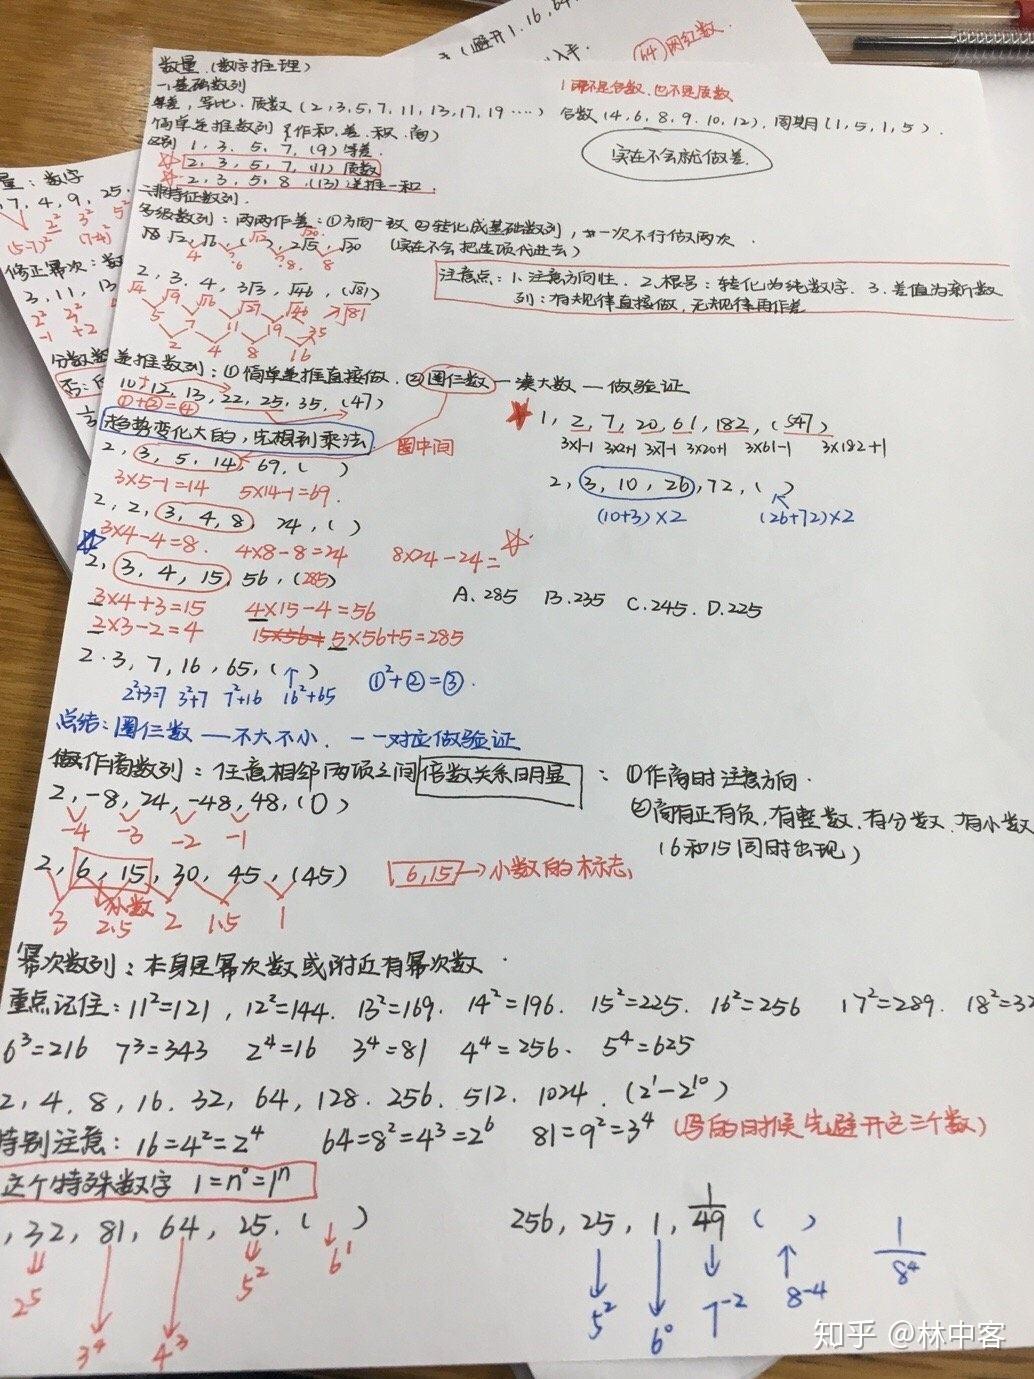 (避开1,16,64
64 网红数.
数量.(数字推理)
一.基础数列
1既不是合数,也不是质数
等差,等比.质数(2,3,5,7,11,13,17,19……) 合数(4,6,8,9.10,12).周期(1,5,1,5).
简单递推数列(作和.差.积.商)
区别 1,3,5,7,(9)等差.
2,3,5,7,(11)质数
2,3,5,8,(13)递推一和.
实在不会就做差.
二.非特征数列.
多级数列:两两作差:①方向一致 ②转化成基础数列,一次不行做两次.
(实在不会把选项代进去)
2,3,4,3√3,√46,(√81)
√4 √9 √16 √27 √46 √81
5 7 11 19 35
2 4 8 16
注意点:1.注意方向性.2.根号:转化为纯数字.3.差值为新数
列:有规律直接做,无规律再作差
递推数列:①简单递推直接做.②圈仨数一凑大数一做验证
10,12,13,22,25,35,(47)
①+②=④
趋势变化大的,先想到乘法
圈中间
2,3,5,14,69,( )
3×5-1=14 5×14-1=69.
2,2,3,4,8,24,( )
3×4-4=8. 4×8-8=24 8×24-24=
2,3,4,15,56,(285)
3×4+3=15 4×15-4=56
2×3-2=4 15×56+ 5×56+5=285
A.285 B.235 C.245.D.225
1,2,7,20,61,182,(547)
3×1-1 3×2+1 3×7-1 3×20+1 3×61-1 3×182+1
2,3,10,26,72,( )
(10+3)×2 (26+72)×2
2.3,7,16,65,( )
2²+3=7 3²+7 7²+16 16²+65 ①²+②=③.
总结:圈仨数——不大不小.一一对应做验证
做作商数列:任意相邻两项之间倍数关系明显:①作商时注意方向.
②商有正有负,有整数.有分数.有小数
(6和15同时出现)
2,-8,24,-48,48,(0)
-4 -3 -2 -1
2,6,15,30,45,(45)
小数
3 2.5 2 1.5 1
6,15→小数的标志,
幂次数列:本身是幂次数或附近有幂次数.
重点记住:11²=121,12²=144.13²=169.14²=196.15²=225.16²=256 17²=289.18²=32
6³=216 7³=343 2⁴=16 3⁴=81 4⁴=256. 5⁴=625
2,4.8,16.32,64,128.256.512.1024.(2¹-2¹⁰)
特别注意:16=4²=2⁴ 64=8²=4³=2⁶ 81=9²=3⁴ (写的时候先避开这三个数)
这个特殊数字 1=n⁰=1ⁿ
,32,81,64,25,( )
2⁵ 3⁴ 4³ 5² 6¹
256,25,1,1/49 ( )
5² 6⁰ 7⁻² 8⁻⁴ 1/8⁴
量:数字
,7,4,9,25.
2² 3² 5²
(5-7)² (7-4)²
修正幂次:数
3,11,13
2² 2²
-1 +2
分数数
知乎 @林中客